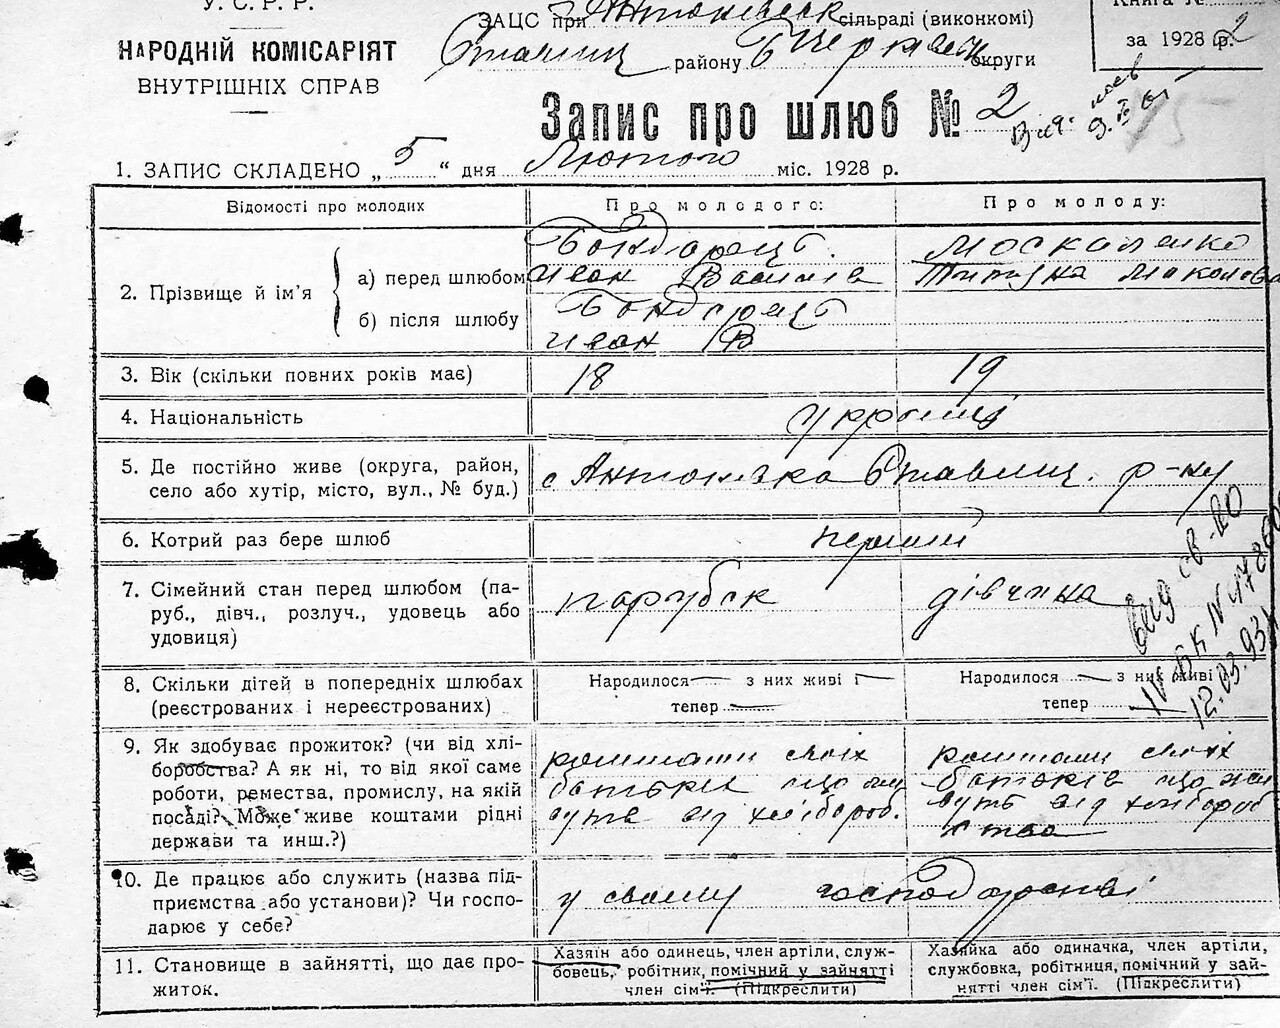 У. С. Р. Р.
НАРОДНІЙ КОМІСАРІЯТ
ВНУТРІШНІХ СПРАВ
ЗАЦС при сільраді (виконкомі)
району округи
Книга №
за 1928 р. 2
Запис про шлюб № 2
1. ЗАПИС СКЛАДЕНО „ 5 “ дня Лютого міс. 1928 р.
Відомості про молодих
Про молодого:
Про молоду:
2. Прізвище й ім’я
а) перед шлюбом
б) після шлюбу
Бондарець
Иван Василів
Бондарець
Иван В
Москаленко
3. Вік (скільки повних років має)
18
19
4. Національність
україці
5. Де постійно живе (округа, район,
село або хутір, місто, вул., № буд.)
с Антонівка Ставищ. р-ну
6. Котрий раз бере шлюб
перший
7. Сімейний стан перед шлюбом (па-
руб., дівч., розлуч., удовець або
удовиця)
парубок
дівчина
8. Скільки дітей в попередніх шлюбах
(реєстрованих і нереєстрованих)
Народилося — з них живі і —
тепер —
Народилося — з них живі і
тепер
9. Як здобуває прожиток? (чи від хлі-
боробства? А як ні, то від якої саме
роботи, ремества, промислу, на якій
посаді? Може живе коштами рідні
держави та инш.?)
коштами своїх
батьків що жи
вуть від хлібороб.
коштами своїх
батьків що жи
вуть від хлібороб
ства
10. Де працює або служить (назва під-
приємства або установи)? Чи госпо-
дарює у себе?
у своєму господарстві
11. Становище в зайнятті, що дає про-
житок.
Хазяїн або одинець, член артіли, служ-
бовець, робітник, помічний у зайнятті
член сім’ї. (Підкреслити)
Хазяйка або одиначка, член артіли,
службовка, робітниця, помічний у зай-
нятті член сім’ї. (Підкреслити)
12.03.93